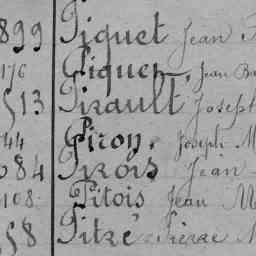 899 Piquet Jean
176 Piquer, Jean Ba
513 Pirault Joseph
44 Piron, Joseph M
084 Pirois Jean
108 Pitois Jean M
58 Pitré Pierre M